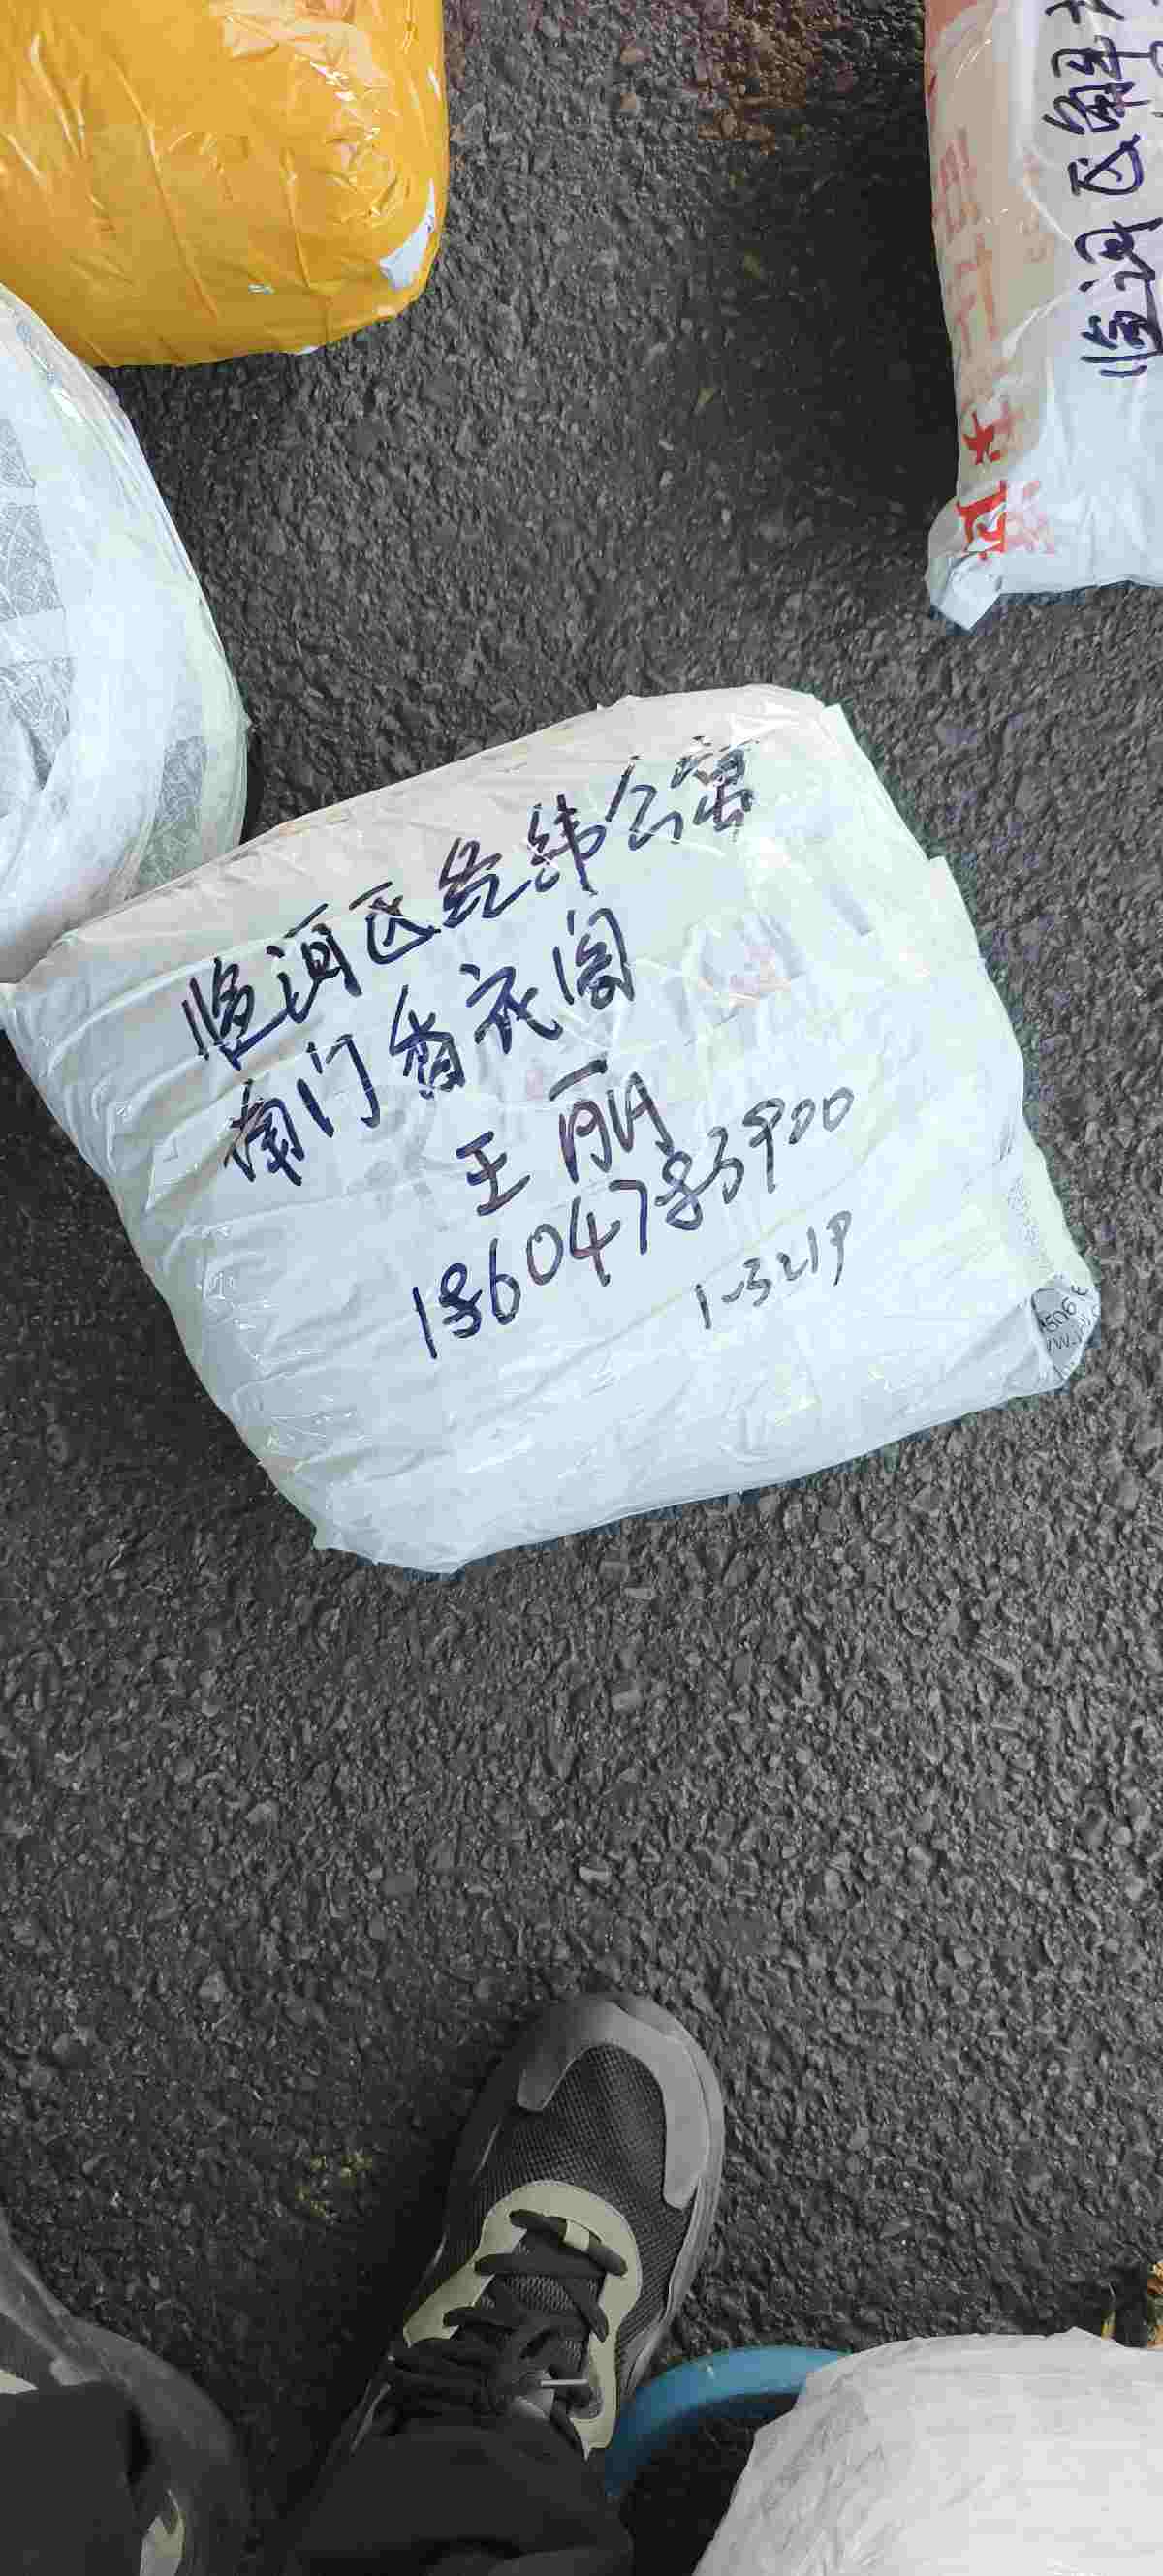 临河区经纬公寓
南门香衣阁
王丽
18604783900
1-3219
临河区解